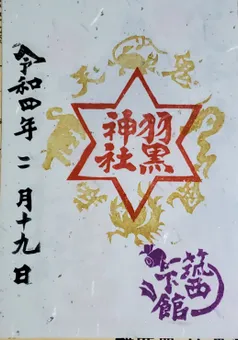 令和四年二月十九日
羽黒
神社
筑西
下館